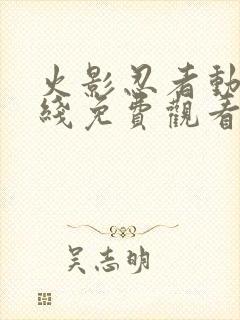 火影忍者動
綫免費觀看
吴志明